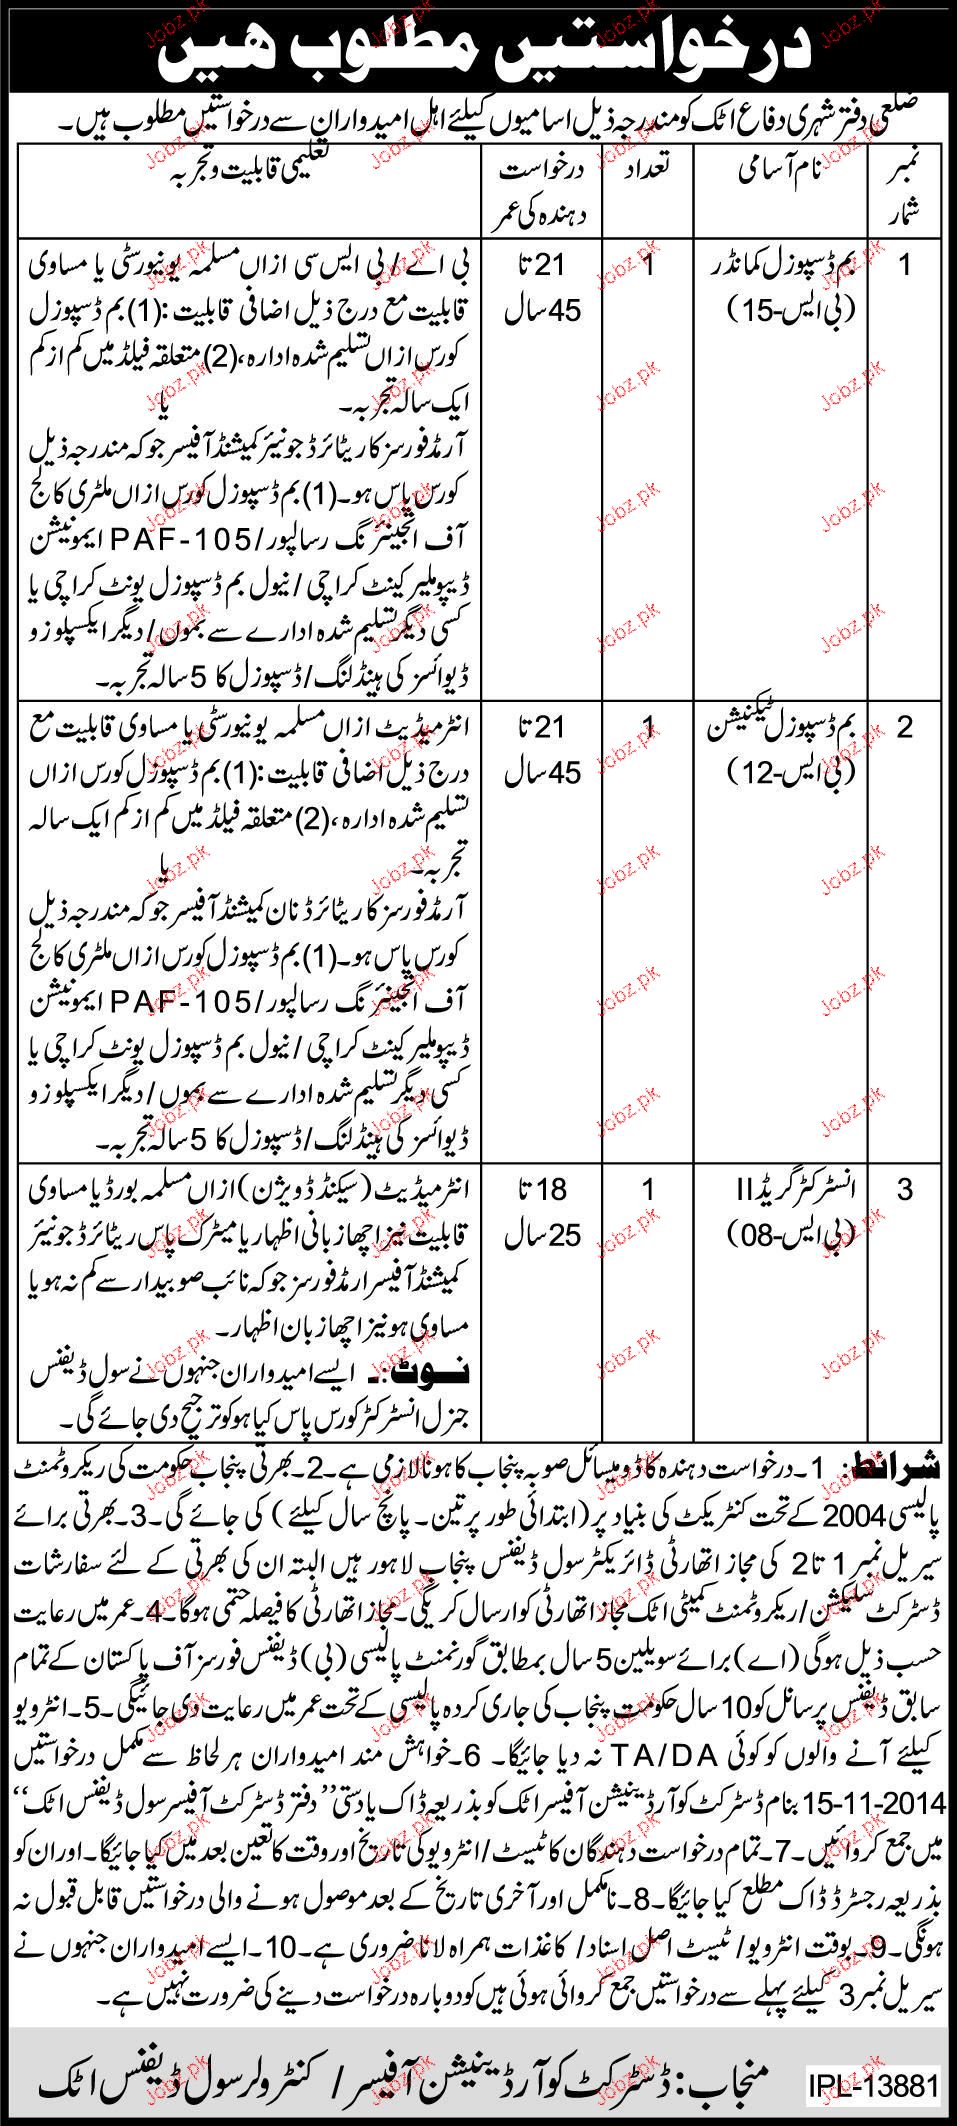 درخواستیں مطلوب ہیں
ضلعی دفتر شہری دفاع اٹک کو مندرجہ ذیل اسامیوں کیلئے اہل امیدواران سے درخواستیں مطلوب ہیں۔
نمبر شمار
نام آسامی
تعداد
درخواست دہندہ کی عمر
تعلیمی قابلیت و تجربہ
1
بم ڈسپوزل کمانڈر
(بی ایس-15)
1
21 تا
45 سال
بی اے/ بی ایس سی ازاں مسلمہ یونیورسٹی یا مساوی
قابلیت مع درج ذیل اضافی قابلیت: (1) بم ڈسپوزل
کورس ازاں تسلیم شدہ ادارہ، (2) متعلقہ فیلڈ میں کم از کم
ایک سالہ تجربہ۔ یا
آرمڈ فورسز کا ریٹائرڈ جونیئر کمیشنڈ آفیسر جو کہ مندرجہ ذیل
کورس پاس ہو۔ (1) بم ڈسپوزل کورس ازاں ملٹری کالج
آف انجینئرنگ رسالپور/ PAF-105 ایمونیشن
ڈیپو ملیر کینٹ کراچی/ نیول بم ڈسپوزل یونٹ کراچی یا
کسی دیگر تسلیم شدہ ادارے سے بموں/ دیگر ایکسپلوزو
ڈیوائسز کی ہینڈلنگ/ ڈسپوزل کا 5 سالہ تجربہ۔
2
بم ڈسپوزل ٹیکنیشن
(بی ایس-12)
1
21 تا
45 سال
انٹرمیڈیٹ ازاں مسلمہ یونیورسٹی یا مساوی قابلیت مع
درج ذیل اضافی قابلیت: (1) بم ڈسپوزل کورس ازاں
تسلیم شدہ ادارہ، (2) متعلقہ فیلڈ میں کم از کم ایک سالہ
تجربہ۔ یا
آرمڈ فورسز کا ریٹائرڈ نان کمیشنڈ آفیسر جو کہ مندرجہ ذیل
کورس پاس ہو۔ (1) بم ڈسپوزل کورس ازاں ملٹری کالج
آف انجینئرنگ رسالپور/ PAF-105 ایمونیشن
ڈیپو ملیر کینٹ کراچی/ نیول بم ڈسپوزل یونٹ کراچی یا
کسی دیگر تسلیم شدہ ادارے سے بموں/ دیگر ایکسپلوزو
ڈیوائسز کی ہینڈلنگ/ ڈسپوزل کا 5 سالہ تجربہ۔
3
انسٹرکٹر گریڈ II
(بی ایس-08)
1
18 تا
25 سال
انٹرمیڈیٹ (سیکنڈ ڈویژن) ازاں مسلمہ بورڈ یا مساوی
قابلیت نیز اچھا زبانی اظہار یا میٹرک پاس ریٹائرڈ جونیئر
کمیشنڈ آفیسر ارمڈ فورسز جو کہ نائب صوبیدار سے کم نہ ہو یا
مساوی ہو نیز اچھا زبان اظہار۔
نوٹ:۔ ایسے امیدواران جنہوں نے سول ڈیفنس
جنرل انسٹرکٹر کورس پاس کیا ہو کو ترجیح دی جائے گی۔
شرائط: 1۔ درخواست دہندہ کا ڈومیسائل صوبہ پنجاب کا ہونا لازمی ہے۔ 2۔ بھرتی پنجاب حکومت کی ریکروٹمنٹ
پالیسی 2004 کے تحت کنٹریکٹ کی بنیاد پر (ابتدائی طور پر تین۔ پانچ سال کیلئے) کی جائے گی۔ 3۔ بھرتی برائے
سیریل نمبر 1 تا 2 کی مجاز اتھارٹی ڈائریکٹر سول ڈیفنس پنجاب لاہور ہیں البتہ ان کی بھرتی کے لئے سفارشات
ڈسٹرکٹ سلیکشن/ ریکروٹمنٹ کمیٹی اٹک مجاز اتھارٹی کو ارسال کریگی۔ مجاز اتھارٹی کا فیصلہ حتمی ہوگا۔ 4۔ عمر میں رعایت
حسب ذیل ہوگی (اے) برائے سویلین 5 سال بمطابق گورنمنٹ پالیسی (بی) ڈیفنس فورسز آف پاکستان کے تمام
سابق ڈیفنس پرسانل کو 10 سال حکومت پنجاب کی جاری کردہ پالیسی کے تحت عمر میں رعایت دی جائیگی۔ 5۔ انٹرویو
کیلئے آنے والوں کو کوئی TA/DA نہ دیا جائیگا۔ 6۔ خواہش مند امیدواران ہر لحاظ سے مکمل درخواستیں
15-11-2014 بنام ڈسٹرکٹ کوآرڈینیشن آفیسر اٹک کو بذریعہ ڈاک یا دستی ”دفتر ڈسٹرکٹ آفیسر سول ڈیفنس اٹک“
میں جمع کروائیں۔ 7۔ تمام درخواست دہندگان کا ٹیسٹ/ انٹرویو کی تاریخ اور وقت کا تعین بعد میں کیا جائیگا۔ اور ان کو
بذریعہ رجسٹرڈ ڈاک مطلع کیا جائیگا۔ 8۔ نامکمل اور آخری تاریخ کے بعد موصول ہونے والی درخواستیں قابل قبول نہ
ہونگی۔ 9۔ بوقت انٹرویو/ ٹیسٹ اصل اسناد/ کاغذات ہمراہ لانا ضروری ہے۔ 10۔ ایسے امیدواران جنہوں نے
سیریل نمبر 3 کیلئے پہلے سے درخواستیں جمع کروائی ہوئی ہیں کو دوبارہ درخواست دینے کی ضرورت نہیں ہے۔
منجاب: ڈسٹرکٹ کوآرڈینیشن آفیسر/ کنٹرولر سول ڈیفنس اٹک
IPL-13881
Jobz.pk